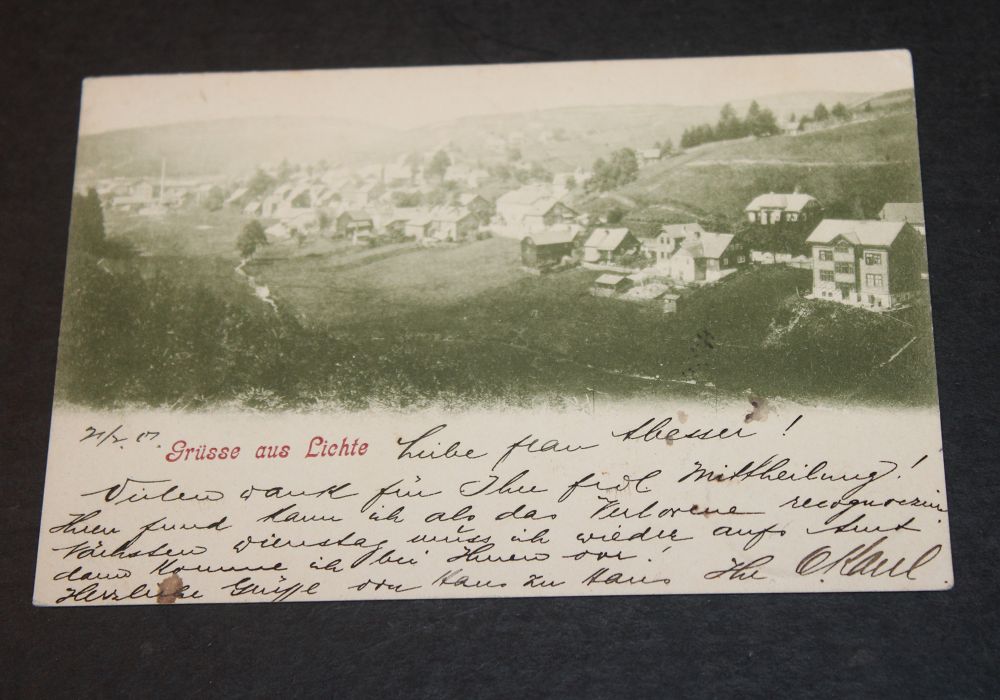 21/2. 01.
Grüsse aus Lichte
Liebe frau Abesser!
Vielen dank für Ihre frdl. Mittheilung!
Ihren fund kann ich als das Verlorene recognoszir
Nächsten dienstag muss ich wieder aufs Amt
dann komme ich bei Ihnen vor!
Herzliche Grüsse von Haus zu Haus Ihr